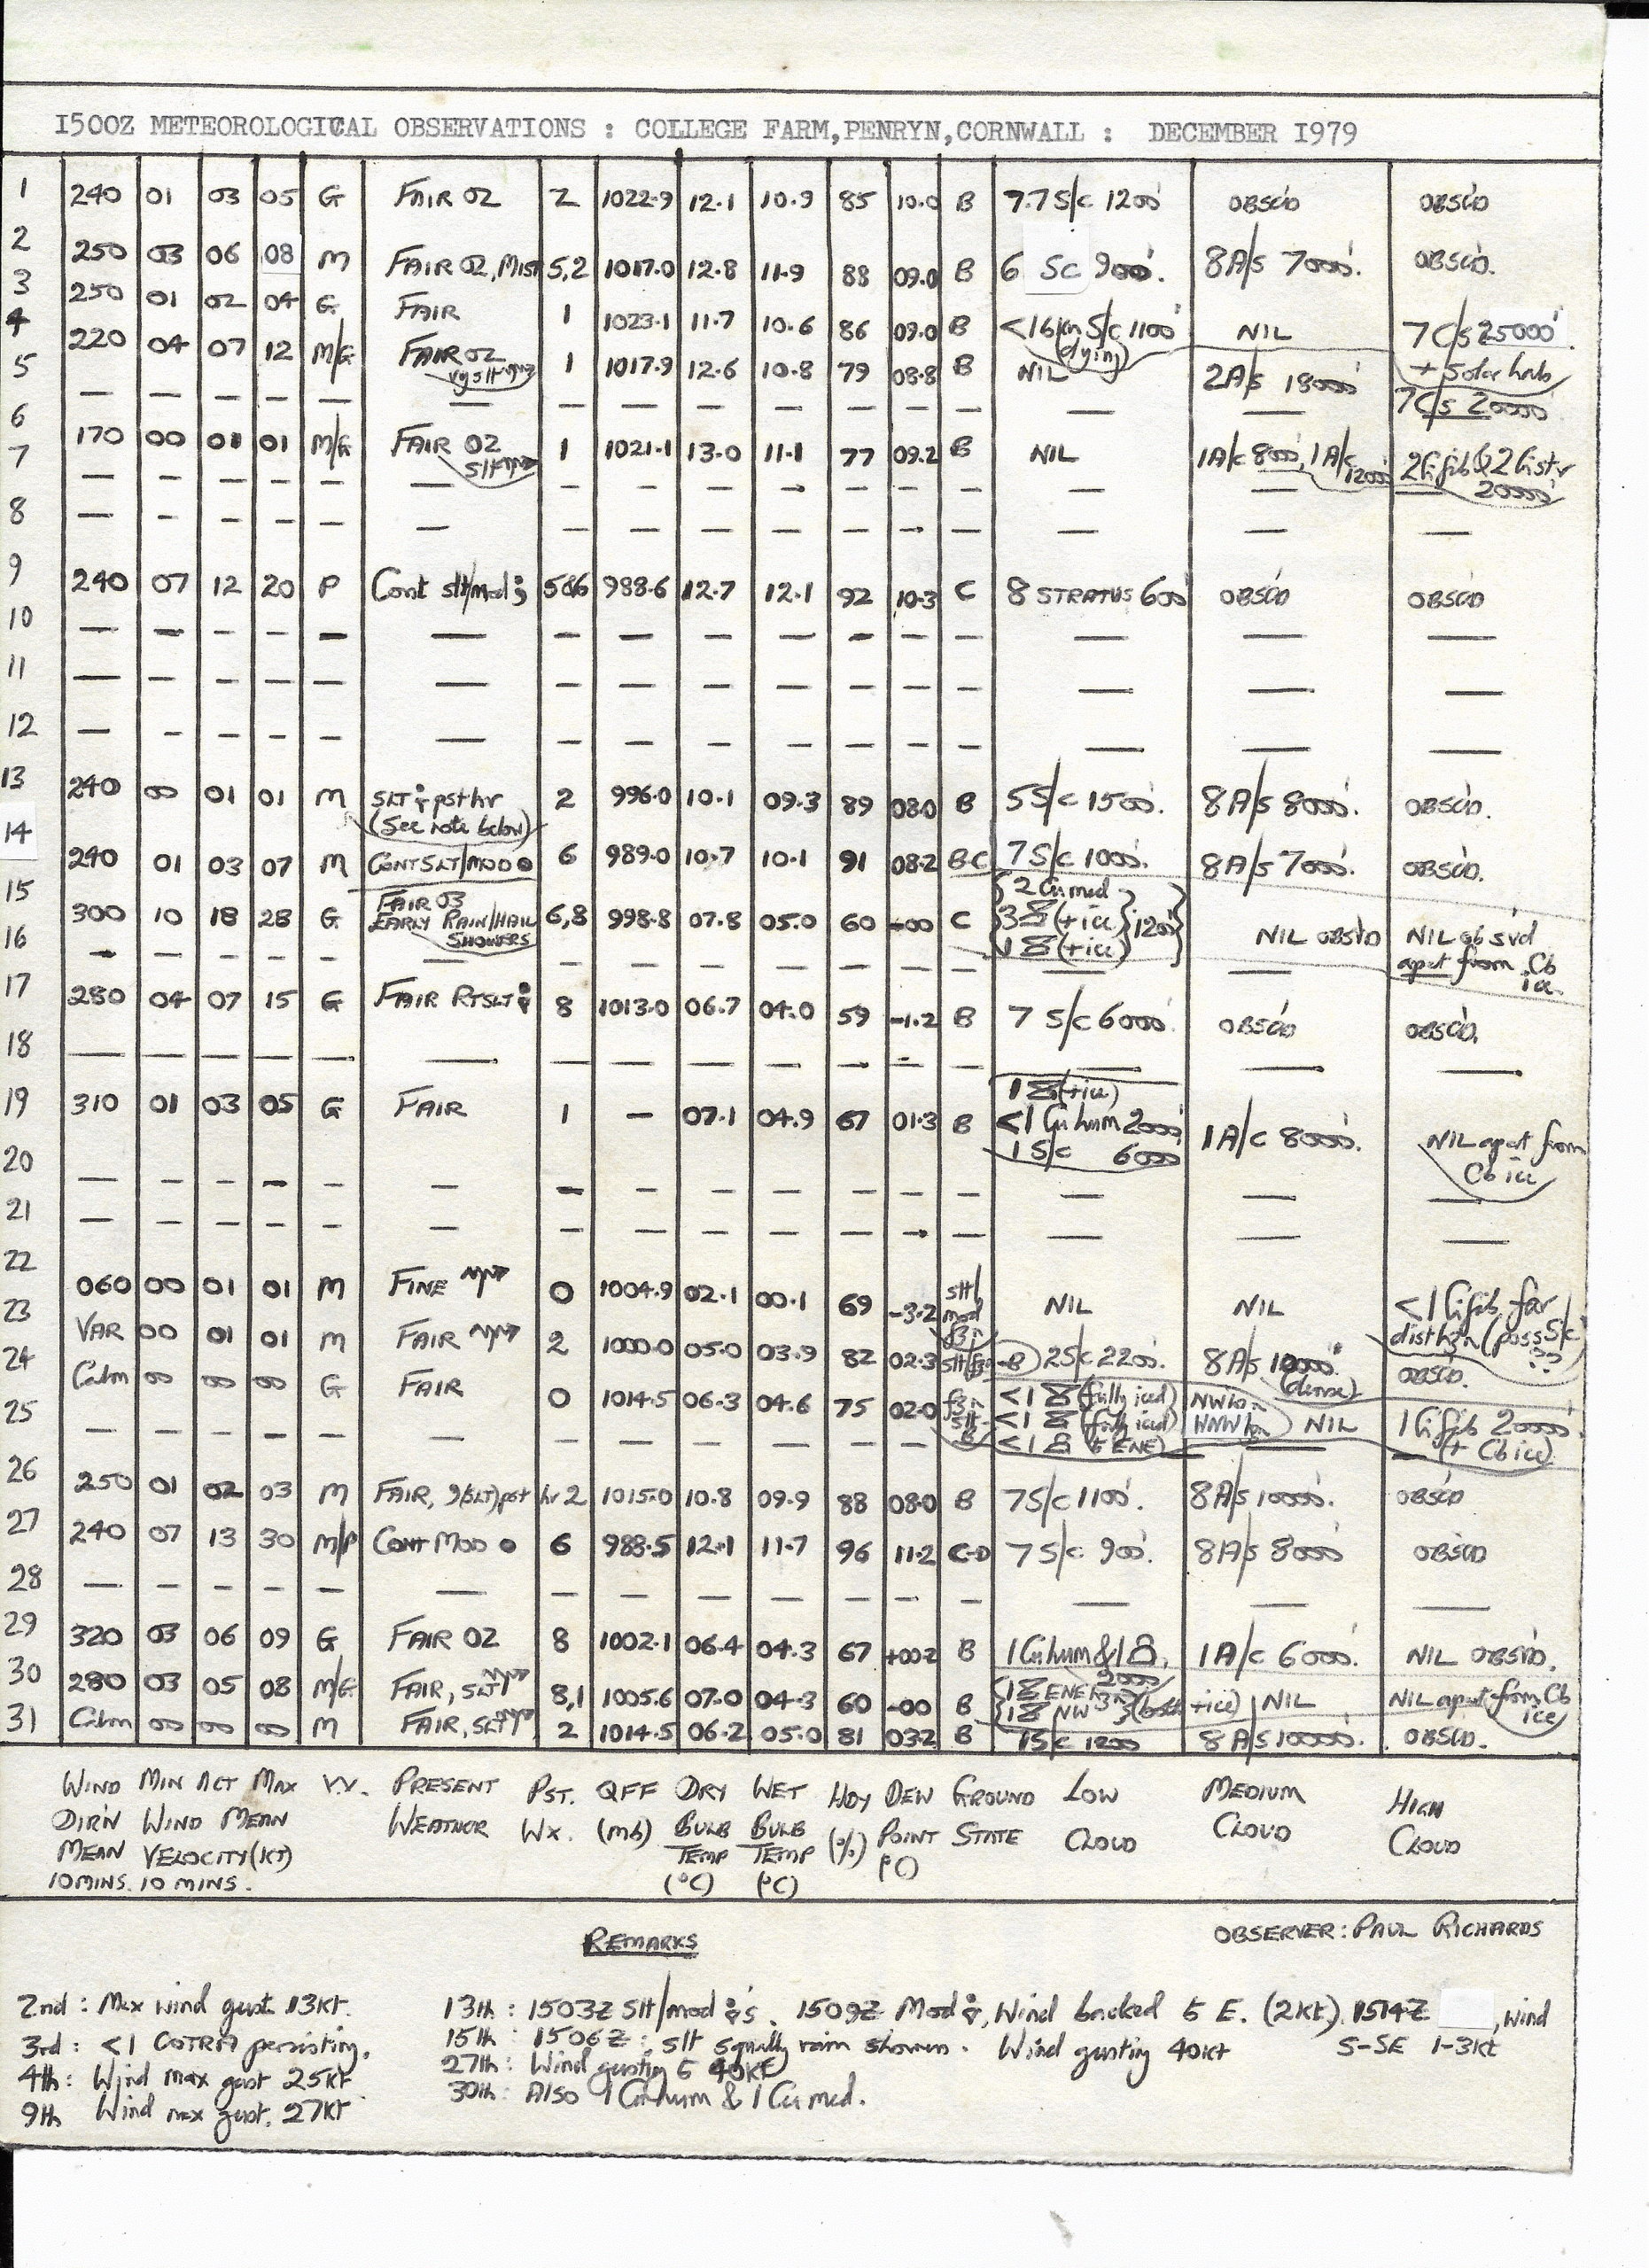 1500Z METEOROLOGICAL OBSERVATIONS : COLLEGE FARM,PENRYN,CORNWALL : DECEMBER 1979
1 240 01 03 05 G FAIR 02 2 1022.9 12.1 10.9 85 10.0 B 7.7 S/C 1200' OBSC'D OBSC'D
2 250 03 06 08 M FAIR 02, MIST 5,2 1017.0 12.8 11.9 88 09.0 B 6 SC 900'. 8A/s 7000'. OBSC'D.
3 250 01 02 04 G FAIR 1 1023.1 11.7 10.6 86 09.0 B S/C 1100' (dying) NIL 7C/s 25000'. + Solar halo
4 220 04 07 12 M/G FAIR 02 vy slt 1 1017.9 12.6 10.8 79 08.8 B NIL 2A/s 18000' 7C/s 20000'
5 — — — — — — — — — — — — — — — —
6 170 00 01 01 M/G FAIR 02 slt 1 1021.1 13.0 11.1 77 09.2 B NIL 1A/c 800', 1A/c 12000' 2Cifib & 2Cistr 20000'
7 — — — — — — — — — — — — — — — —
8 — — — — — — — — — — — — — — —
9 240 07 12 20 P Cont slt/mod 5&6 988.6 12.7 12.1 92 10.3 C 8 STRATUS 600' OBSC'D OBSC'D
10 — — — — — — — — — — — — — — —
11 — — — — — — — — — — — — — — —
12 — — — — — — — — — — — — — — —
13 240 00 01 01 M SLT pst hr (See note below) 2 996.0 10.1 09.3 89 08.0 B 5S/c 1500'. 8A/s 8000'. OBSC'D.
14 240 01 03 07 M CONT SLT/MOD 6 989.0 10.7 10.1 91 08.2 BC 7S/c 1000'. 8A/s 7000'. OBSC'D.
15 300 10 18 28 G FAIR 03 EARLY RAIN/HAIL SHOWERS 6,8 998.8 07.8 05.0 60 -00 C 2 Cu med 3 (+ice) 1 (+ice) 1200' NIL OBSVD NIL obsvd apart from Cb ice.
16 — — — — — — — — — — — — — —
17 280 04 07 15 G FAIR RTSLT 8 1013.0 06.7 04.0 59 -1.2 B 7 S/c 6000'. OBSC'D OBSC'D.
18 — — — — — — — — — — — — — — —
19 310 01 03 05 G FAIR 1 — 07.1 04.9 67 01.3 B 1 (+ice) <1 Cu hum 2000' 1 S/c 6000' 1A/c 8000'. NIL apart from Cb ice
20 — — — — — — — — — — — — — — —
21 — — — — — — — — — — — — — — —
22 060 00 01 01 M FINE 0 1004.9 02.1 00.1 69 -3.2 slt/mod fzn NIL NIL <1 Cifib, far dist hzn (poss S/c ??)
23 VAR 00 01 01 M FAIR 2 1000.0 05.0 03.9 82 02.3 slt/fzn-B 2S/c 2200'. 8A/s 10000' (dense) OBSC'D.
24 Calm 00 00 00 G FAIR 0 1014.5 06.3 04.6 75 02.0 fzn slt-B <1 (fully iced) NW hzn <1 (fully iced) WNW hzn <1 (to ENE) NIL 1 Cifib 20000' (+ Cb ice)
25 — — — — — — — — — — — — — — —
26 250 01 02 03 M FAIR, (SLT) pst hr 2 1015.0 10.8 09.9 88 08.0 B 7S/c 1100'. 8A/s 10000'. OBSC'D
27 240 07 13 30 M/P CONT MOD 6 988.5 12.1 11.7 96 11.2 C-D 7 S/c 900'. 8A/s 8000' OBSC'D
28 — — — — — — — — — — — — — — —
29 320 03 06 09 G FAIR 02 8 1002.1 06.4 04.3 67 +00.2 B 1 Cu hum & 1 2000' 1A/c 6000'. NIL OBSVD.
30 280 03 05 08 M/G FAIR, SLT 8,1 1005.6 07.0 04.3 60 -00 B 1 ENE 1 NW (both +ice) NIL NIL apart from Cb ice
31 Calm 00 00 00 M FAIR, SLT 2 1014.5 06.2 05.0 81 03.2 B 1S/c 1200' 8A/s 10000'. OBSC'D.
WIND MIN ACT MAX V.V. PRESENT PST. QFF DRY WET HDY DEW GROUND LOW MEDIUM HIGH
DIR'N WIND MEAN WEATHER Wx. (mb) BULB BULB (%) POINT STATE CLOUD CLOUD CLOUD
MEAN VELOCITY(KT) TEMP TEMP (°C)
10 MINS. 10 MINS. (°C) (°C)
REMARKS
OBSERVER: PAUL RICHARDS
2nd : Max wind gust 13kt.
3rd : <1 COTRA persisting.
4th : Wind max gust 25kt
9th Wind max gust. 27kt
13th : 1503Z slt/mod 's. 1509Z Mod , Wind backed to E. (2kt). 1514Z , wind S-SE 1-3kt
15th : 1506Z : slt squally rain showers. Wind gusting 40kt
27th : Wind gusting to 40kt
30th : Also 1 Cu hum & 1 Cu med.